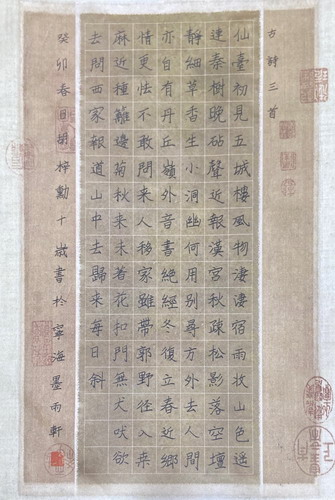 古詩三首
仙臺初見五城樓風物淒淒宿雨收山色遙
連秦樹晚砧聲近報漢宮秋疎松影落空壇
靜細草香生小洞幽何用別尋方外去人間
亦自有丹丘嶺外音書絕經冬復立春近鄉
情更怯不敢問来人移家雖帶郭野徑入桒
麻近種籬邊菊秋来未着花扣門無犬吠欲
去問西家報道山中去歸来每日斜
癸卯春日胡梓勳十歲書於寧海墨雨軒